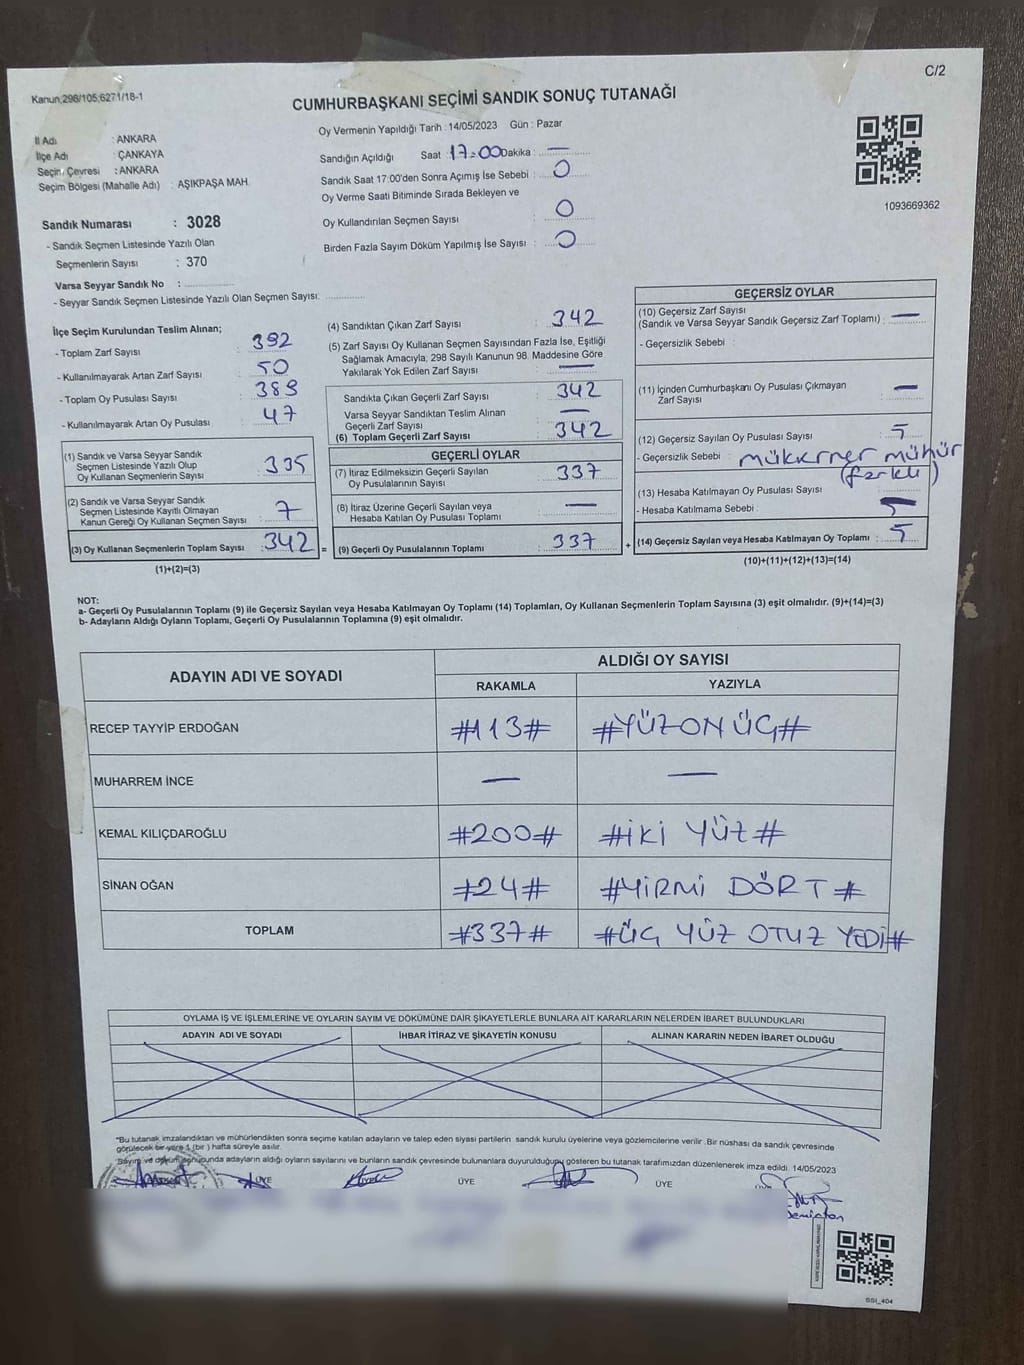 C/2
Kanun;298/105;6271/18-1
CUMHURBAŞKANI SEÇİMİ SANDIK SONUÇ TUTANAĞI
Oy Vermenin Yapıldığı Tarih : 14/05/2023 Gün : Pazar
İl Adı : ANKARA
İlçe Adı : ÇANKAYA
Seçim Çevresi : ANKARA
Seçim Bölgesi (Mahalle Adı) : AŞIKPAŞA MAH.
Sandığın Açıldığı Saat : 17:00 Dakika : —
Sandık Saat 17:00'den Sonra Açılmış İse Sebebi : 0
Oy Verme Saati Bitiminde Sırada Bekleyen ve
Oy Kullandırılan Seçmen Sayısı 0
Birden Fazla Sayım Döküm Yapılmış İse Sayısı : 0
1093669362
Sandık Numarası : 3028
- Sandık Seçmen Listesinde Yazılı Olan
Seçmenlerin Sayısı : 370
Varsa Seyyar Sandık No :
- Seyyar Sandık Seçmen Listesinde Yazılı Olan Seçmen Sayısı:
İlçe Seçim Kurulundan Teslim Alınan;
- Toplam Zarf Sayısı : 392
- Kullanılmayarak Artan Zarf Sayısı : 50
- Toplam Oy Pusulası Sayısı : 389
- Kullanılmayarak Artan Oy Pusulası : 47
(1) Sandık ve Varsa Seyyar Sandık
Seçmen Listesinde Yazılı Olup
Oy Kullanan Seçmenlerin Sayısı : 335
(2) Sandık ve Varsa Seyyar Sandık
Seçmen Listesinde Kayıtlı Olmayan
Kanun Gereği Oy Kullanan Seçmen Sayısı : 7
(3) Oy Kullanan Seçmenlerin Toplam Sayısı : 342 =
(1)+(2)=(3)
(4) Sandıktan Çıkan Zarf Sayısı : 342
(5) Zarf Sayısı Oy Kullanan Seçmen Sayısından Fazla İse, Eşitliği
Sağlamak Amacıyla; 298 Sayılı Kanunun 98. Maddesine Göre
Yakılarak Yok Edilen Zarf Sayısı : —
Sandıkta Çıkan Geçerli Zarf Sayısı : 342
Varsa Seyyar Sandıktan Teslim Alınan
Geçerli Zarf Sayısı : —
(6) Toplam Geçerli Zarf Sayısı : 342
GEÇERLİ OYLAR
(7) İtiraz Edilmeksizin Geçerli Sayılan
Oy Pusulalarının Sayısı : 337
(8) İtiraz Üzerine Geçerli Sayılan veya
Hesaba Katılan Oy Pusulası Toplamı : —
(9) Geçerli Oy Pusulalarının Toplamı : 337 +
GEÇERSİZ OYLAR
(10) Geçersiz Zarf Sayısı
(Sandık ve Varsa Seyyar Sandık Geçersiz Zarf Toplamı) : —
- Geçersizlik Sebebi :
(11) İçinden Cumhurbaşkanı Oy Pusulası Çıkmayan
Zarf Sayısı : —
(12) Geçersiz Sayılan Oy Pusulası Sayısı : 5
- Geçersizlik Sebebi : mükerrer mühür
(farklı)
(13) Hesaba Katılmayan Oy Pusulası Sayısı :
- Hesaba Katılmama Sebebi :
(14) Geçersiz Sayılan veya Hesaba Katılmayan Oy Toplamı : 5
(10)+(11)+(12)+(13)=(14)
NOT:
a- Geçerli Oy Pusulalarının Toplamı (9) ile Geçersiz Sayılan veya Hesaba Katılmayan Oy Toplamı (14) Toplamları, Oy Kullanan Seçmenlerin Toplam Sayısına (3) eşit olmalıdır. (9)+(14)=(3)
b- Adayların Aldığı Oyların Toplamı, Geçerli Oy Pusulalarının Toplamına (9) eşit olmalıdır.
ADAYIN ADI VE SOYADI ALDIĞI OY SAYISI
RAKAMLA YAZIYLA
RECEP TAYYİP ERDOĞAN #113# #YÜZONÜÇ#
MUHARREM İNCE — —
KEMAL KILIÇDAROĞLU #200# #İKİ YÜZ#
SİNAN OĞAN #24# #YİRMİ DÖRT#
TOPLAM #337# #ÜÇ YÜZ OTUZ YEDİ#
OYLAMA İŞ VE İŞLEMLERİNE VE OYLARIN SAYIM VE DÖKÜMÜNE DAİR ŞİKAYETLERLE BUNLARA AİT KARARLARIN NELERDEN İBARET BULUNDUKLARI
ADAYIN ADI VE SOYADI İHBAR İTİRAZ VE ŞİKAYETİN KONUSU ALINAN KARARIN NEDEN İBARET OLDUĞU
*Bu tutanak imzalandıktan ve mühürlendikten sonra seçime katılan adayların ve talep eden siyasi partilerin sandık kurulu üyelerine veya gözlemcilerine verilir. Bir nüshası da sandık çevresinde
görülecek bir yere 1 (bir) hafta süreyle asılır.
Sayım ve döküm sonucunda adayların aldığı oyların sayılarını ve bunların sandık çevresinde bulunanlara duyurulduğunu gösteren bu tutanak tarafımızdan düzenlenerek imza edildi. 14/05/2023
ÜYE ÜYE ÜYE
SSI_404